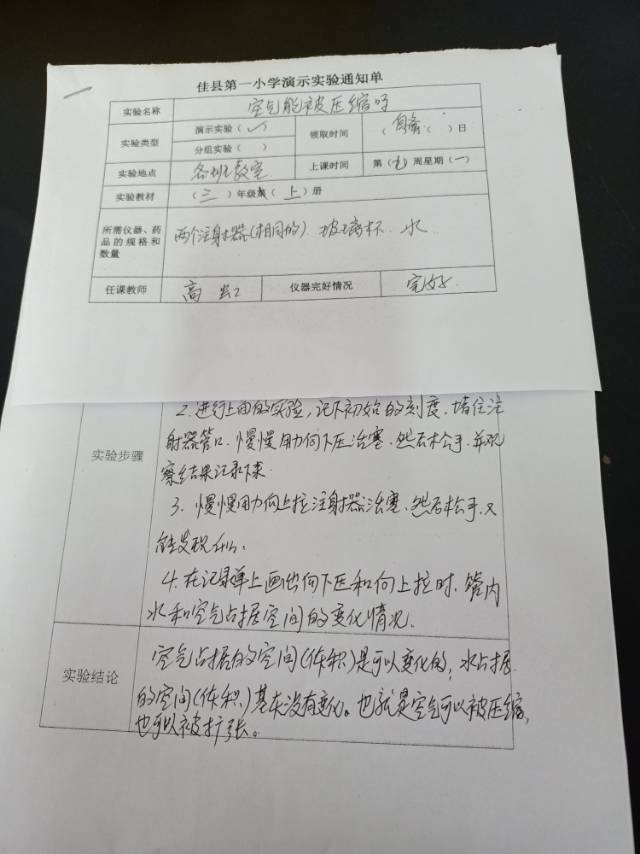 佳县第一小学演示实验通知单
实验名称 空气能被压缩吗
实验类型 演示实验（✓） 领取时间 （自备（ ）日
分组实验（ ）
实验地点 各班教室 上课时间 第（九）周星期（一）
实验教材 （三）年级（上）册
所需仪器、药品的规格和数量 两个注射器(相同的) 玻璃杯 水
任课教师 高 仪器完好情况 完好
2.进行上面的实验，记下初始的刻度，堵住注
实验步骤 射器管口，慢慢用力向下压活塞，然后松手，并观
察结果记录下来
3、慢慢用力向上拉注射器活塞，然后松手，又
能发现什么。
4.在记录单上画出向下压和向上拉时，管内
水和空气占据空间的变化情况.
实验结论 空气占据的空间(体积)是可以变化的，水占据
的空间(体积)基本没有变化。也就是空气可以被压缩，
也可以被扩张。